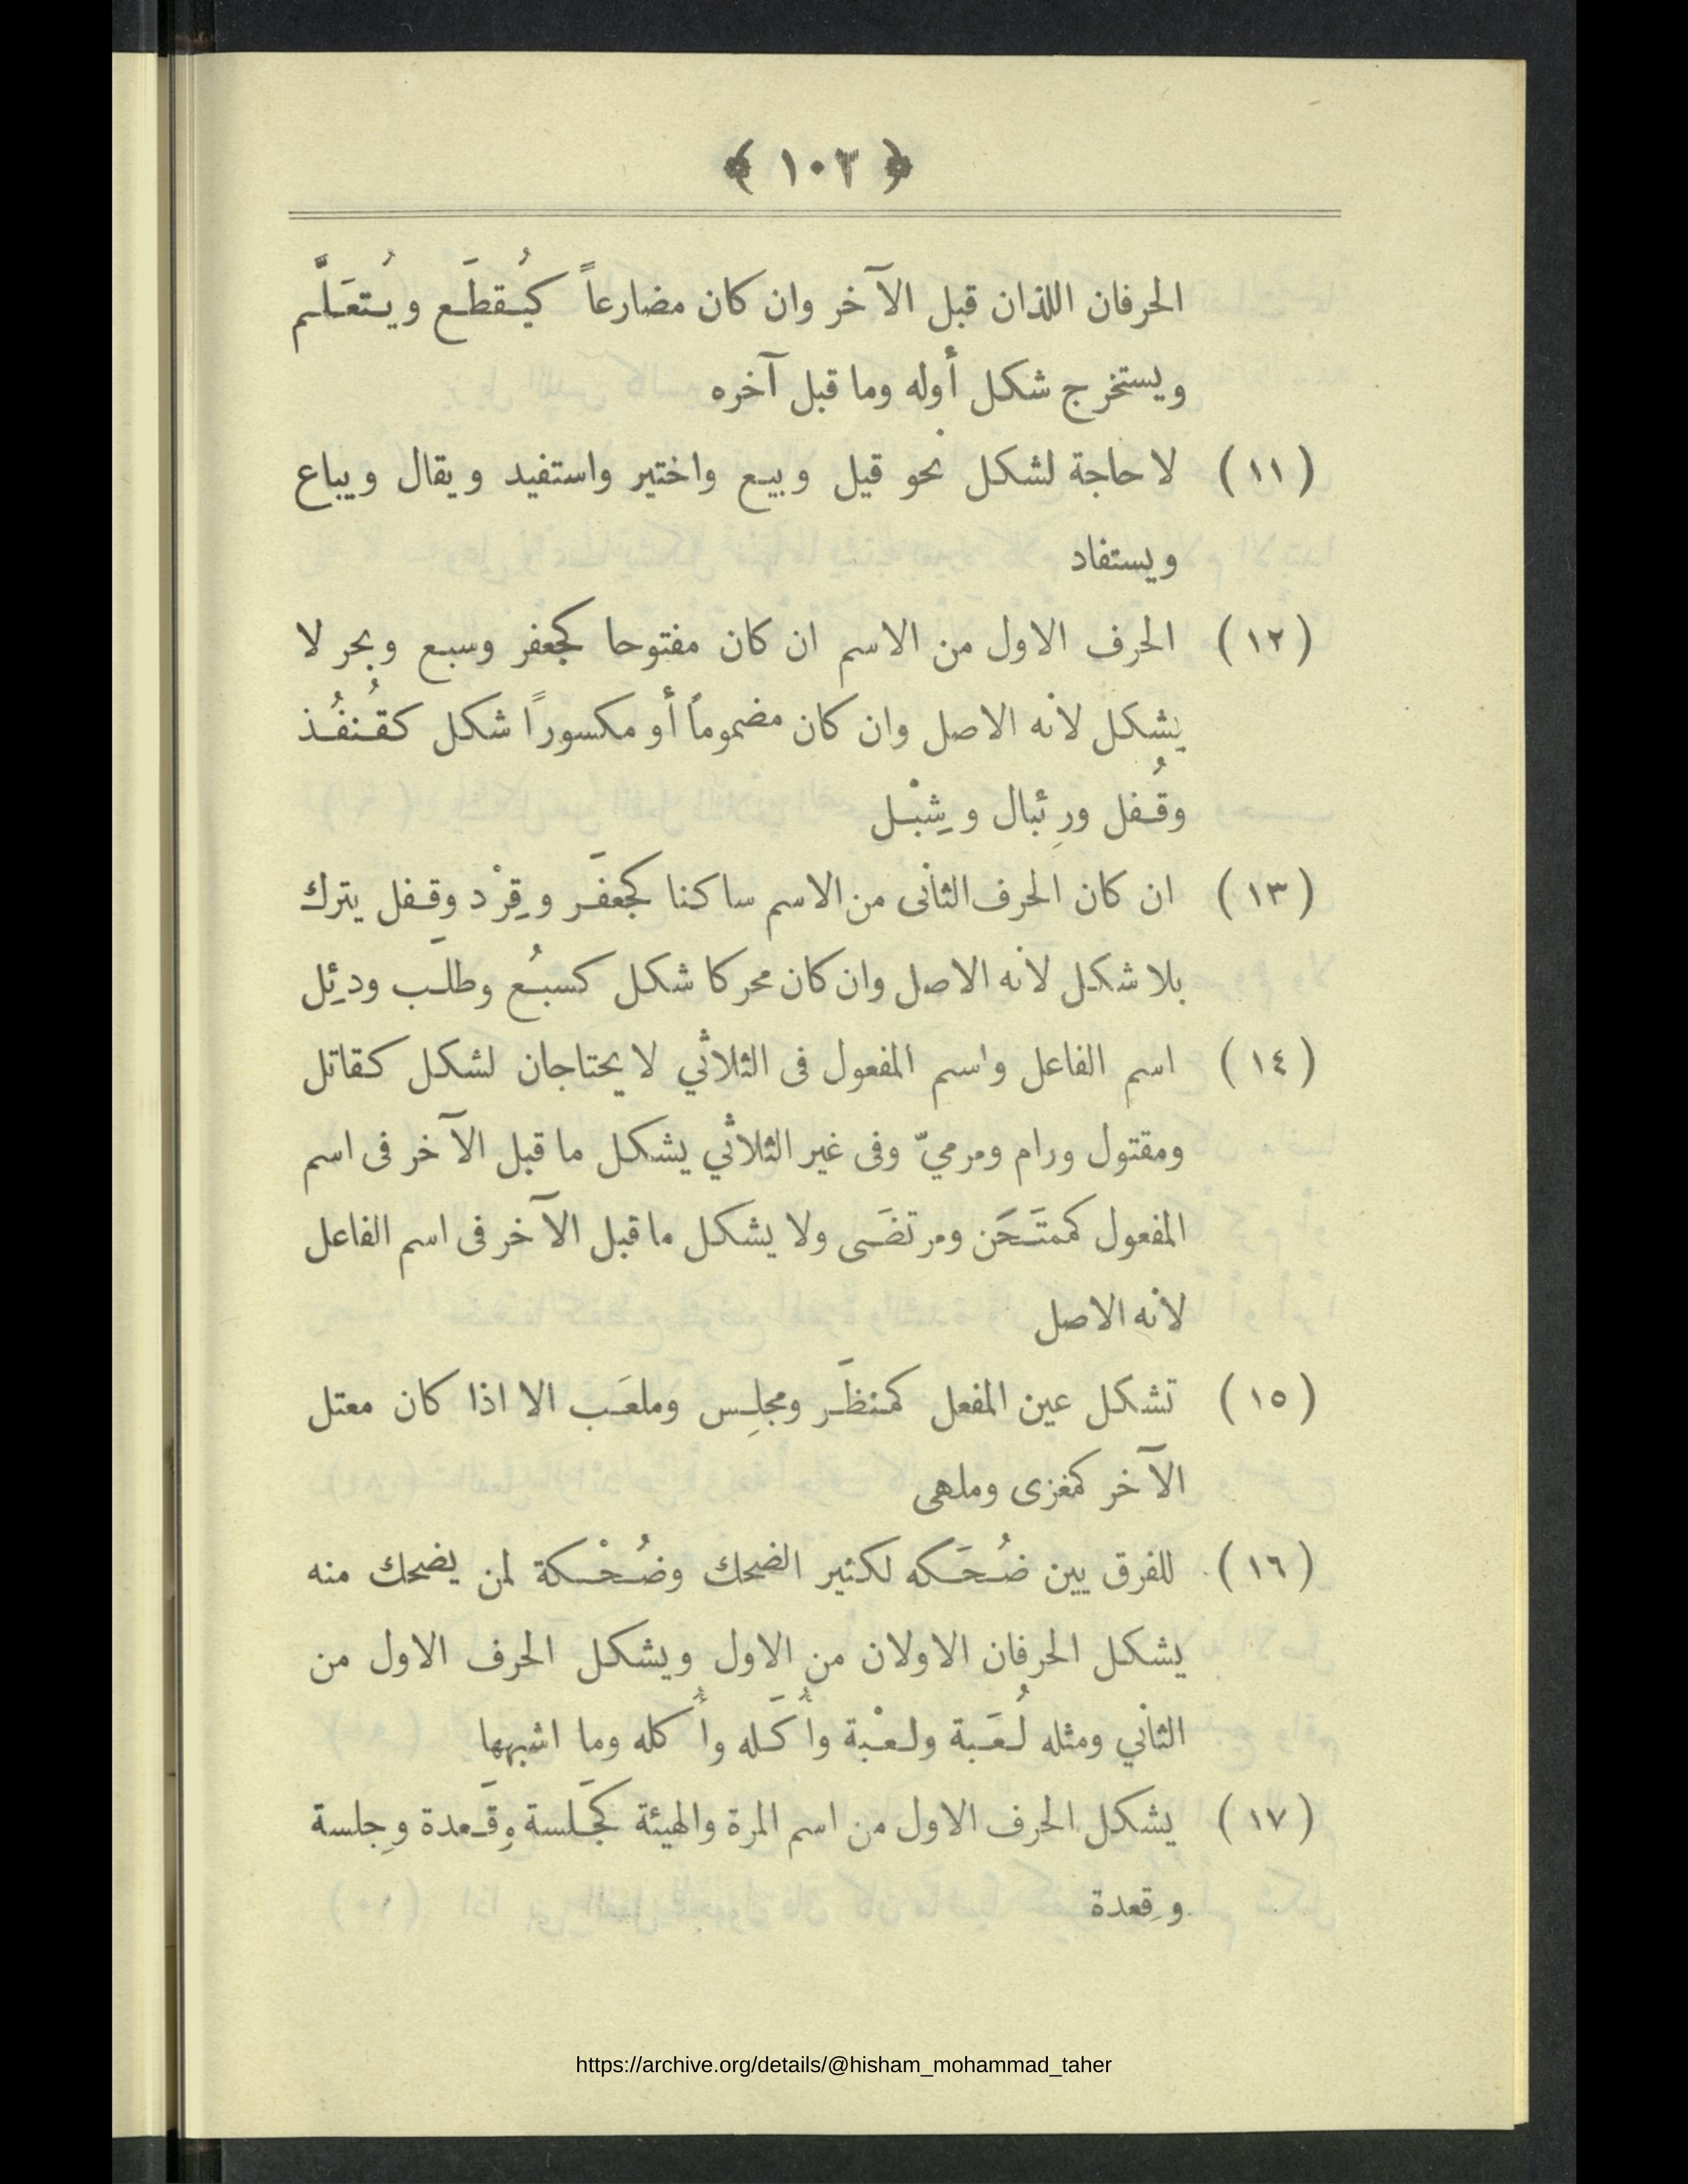 ﴿ ١٠٣ ﴾
الحرفان اللذان قبل الآخر وان كان مضارعاً كيُقطَع ويُتعَلَّم
ويستخرج شكل أوله وما قبل آخره
(١١) لا حاجة لشكل نحو قيل وبيع واختير واستفيد ويقال ويباع
ويستفاد
(١٢) الحرف الاول من الاسم ان كان مفتوحا كجعفر وسبع وبحر لا
يشكل لانه الاصل وان كان مضموماً أو مكسوراً شكل كقُنفُذ
وقُفل ورِئبال وشِبْل
(١٣) ان كان الحرف الثانى من الاسم ساكنا كجعفَر وقِرْد وقفل يترك
بلا شكل لانه الاصل وان كان محركا شكل كسبُع وطلَب ودئِل
(١٤) اسم الفاعل واسم المفعول فى الثلاثي لا يحتاجان لشكل كقاتل
ومقتول ورام ومرميّ وفى غير الثلاثي يشكل ما قبل الآخر فى اسم
المفعول كممتَحَن ومرتضَى ولا يشكل ما قبل الآخر فى اسم الفاعل
لانه الاصل
(١٥) تشكل عين المفعل كمنظَر ومجلِس وملعَب الا اذا كان معتل
الآخر كمغزى وملهى
(١٦) للفرق بين ضُحَكه لكثير الضحك وضُحْكة لمن يضحك منه
يشكل الحرفان الاولان من الاول ويشكل الحرف الاول من
الثاني ومثله لُعَبة ولعْبة وأُكَله وأُكله وما اشبهها
(١٧) يشكل الحرف الاول من اسم المرة والهيئة كجَلسة وقَعدة وجِلسة
وقِعدة
https://archive.org/details/@hisham_mohammad_taher